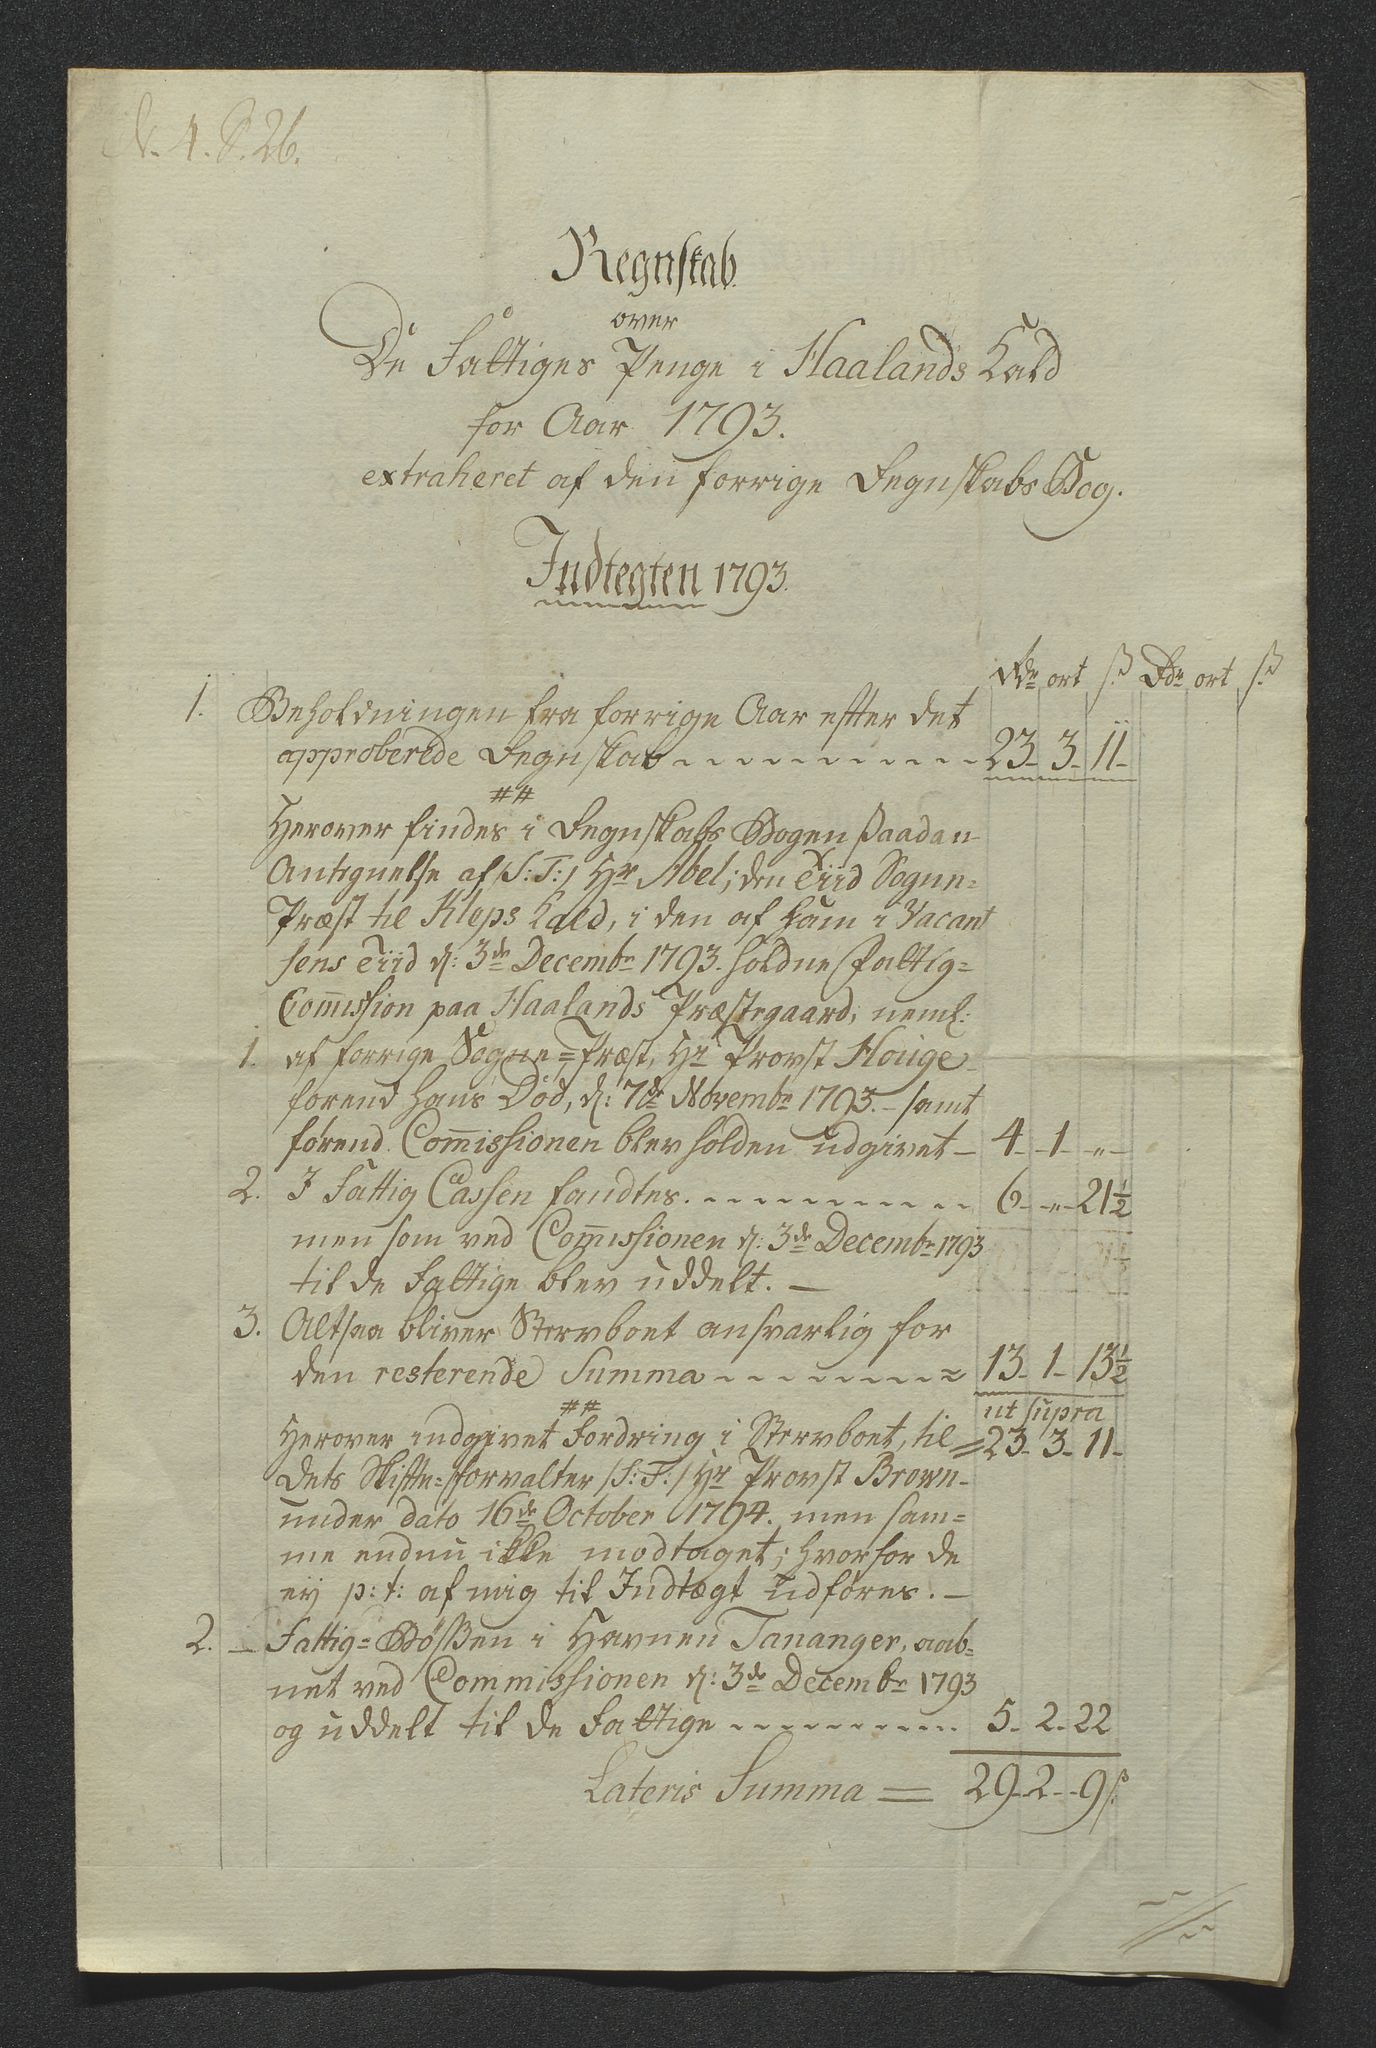 N. 4. S. 26.
Regnskab
over
De Fattiges Penge i Haalands Kald
for Aar 1793.
extraheret af den forrige Regnskabs Bog.
Indtegten 1793.
Rdr ort ß Rdr ort ß
1. Beholdningen fra forrige Aar efter det
approberede Regnskab 23 - 3 - 11 -
##
Herover findes i Regnskabs Bogen saadan
Antegnelse af /S:T:/ Hr Abel; den Tiid Sogne=
Præst til Kleps Kald, i den af ham i Vacant
sens Tiid d: 3de Decembr 1793. holdne Fattig=
Com̅ission paa Haalands Præstegaard; neml:
1. af forrige Sogne=Præst, Hr Provst Houge
forend hans Død, d: 7de Novembr 1793. - samt
førend Com̅issionen blev holden udgivet - 4 - 1 - „ -
2. I Fattig Cassen fandtes. 6 - „ - 21½
men som ved Com̅issionen d: 3de Decembr 1793
til de Fattige blev uddelt. -
3. Altsaa bliver Stervboet ansvarlig for
den resterende Summa 13 - 1 - 13½
## ut supra
Herover indgivet Fordring i Stervboet, til = 23 - 3 - 11 -
dets Skifte=forvalter /S:T:/ Hr Provst Brown -
under dato 16de October 1794. men sam=
me endnu ikke modtaget; hvorfor de
eij p:t: af mig til Indtægt udføres. -
2. - Fattig=Bøssen i Havnen Tananger, aab=
net ved Commissionen d: 3de Decembr 1793
og uddelt til de Fattige 5 - 2 - 22
Lateris Summa = 29 - 2 - 9 ß